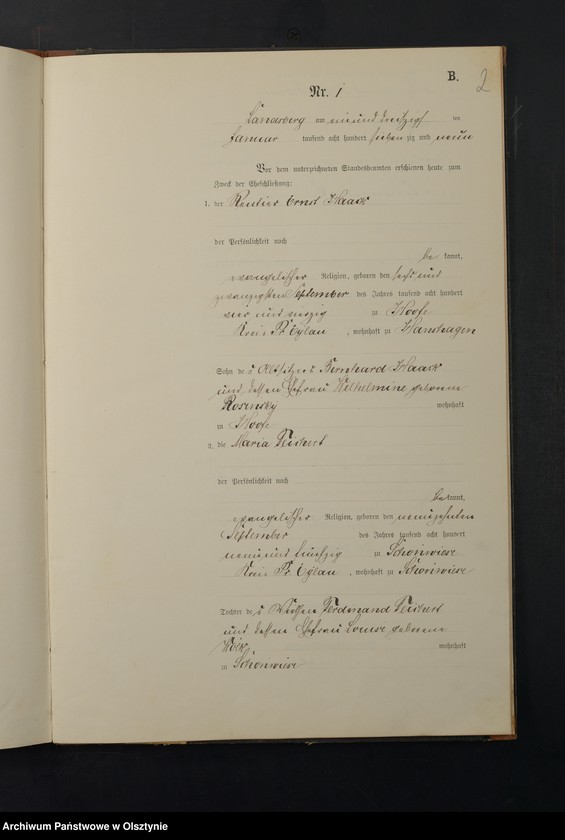 B.
2
Nr. 1
Landsberg am ein und dreißigsten
Januar tausend acht hundert sieben zig und neun
Vor dem unterzeichneten Standesbeamten erschienen heute zum
Zweck der Eheschließung:
1. der Rentier Ernst Haack
der Persönlichkeit nach
be kannt,
evangelischer Religion, geboren den sechs und
zwanzigsten September des Jahres tausend acht hundert
vier und vierzig zu Hoofe
Kreis Pr. Eylau, wohnhaft zu Hanshagen
Sohn des Altsitzers Bernhard Haack
und dessen Ehefrau Wilhelmine geborene
Rosinsky wohnhaft
zu Hoofe
2. die Maria Teichert
der Persönlichkeit nach
be kannt,
evangelischer Religion, geboren den neunzehnten
September des Jahres tausend acht hundert
neun und fünfzig zu Schönwiese
Kreis Pr. Eylau, wohnhaft zu Schönwiese
Tochter des Ferdinand Teichert
und dessen Ehefrau Louise geborene
wohnhaft
zu Schönwiese
Archiwum Państwowe w Olsztynie